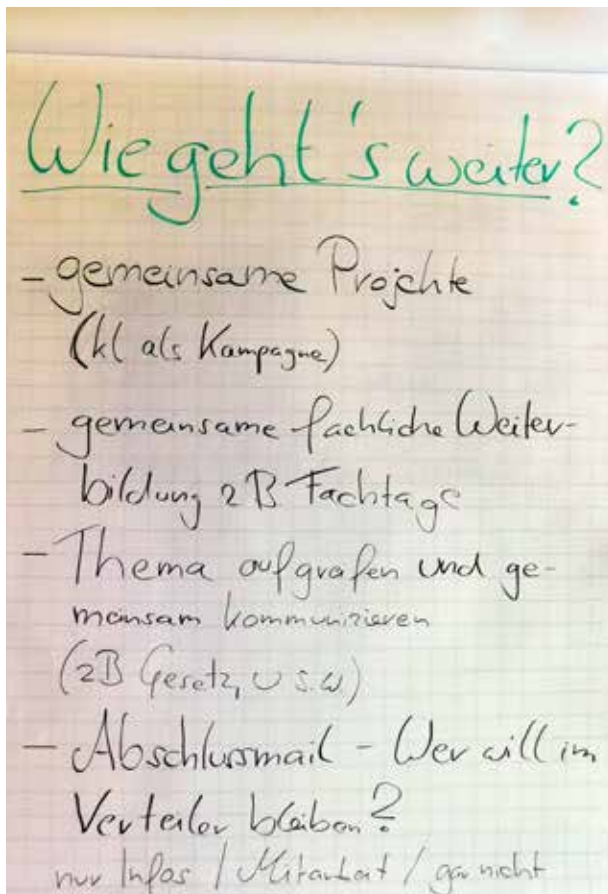 Wie geht's weiter?
- gemeinsame Projekte
(kl als Kampagne)
- gemeinsame fachliche Weiter-
bildung zB Fachtage
- Thema aufgrafen und ge-
meinsam kommunizieren
(zB Gesetz, u s.w)
- Abschlussmail - Wer will im
Verteiler bleiben?
nur Infos / Mitarbeit / gar nicht